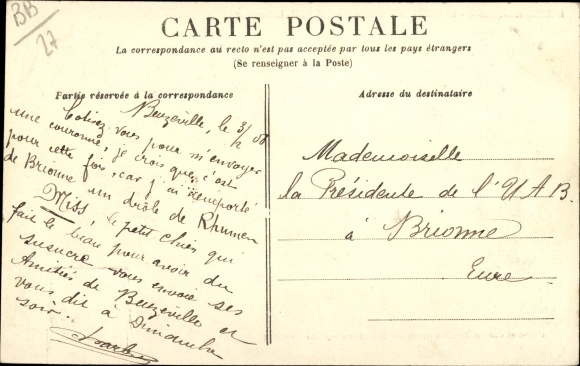 BB
27
CARTE POSTALE
La correspondance au recto n'est pas acceptée par tous les pays étrangers
(Se renseigner à la Poste)
Partie réservée à la correspondance
Beuzeville, le 3/ 08
Cotisez-vous pour m'envoyer
une couronne, je crois que c'est
pour cette fois, car j'ai remporté
de Brionne un drôle de Rhume
Miss, le petit chien qui
fait le beau pour avoir du
susucre vous envoie ses
Amitiés de Beuzeville et
vous dit à Dimanche
soir.
Adresse du destinataire
Mademoiselle
la Présidente de l'U A B.
à Brionne
Eure